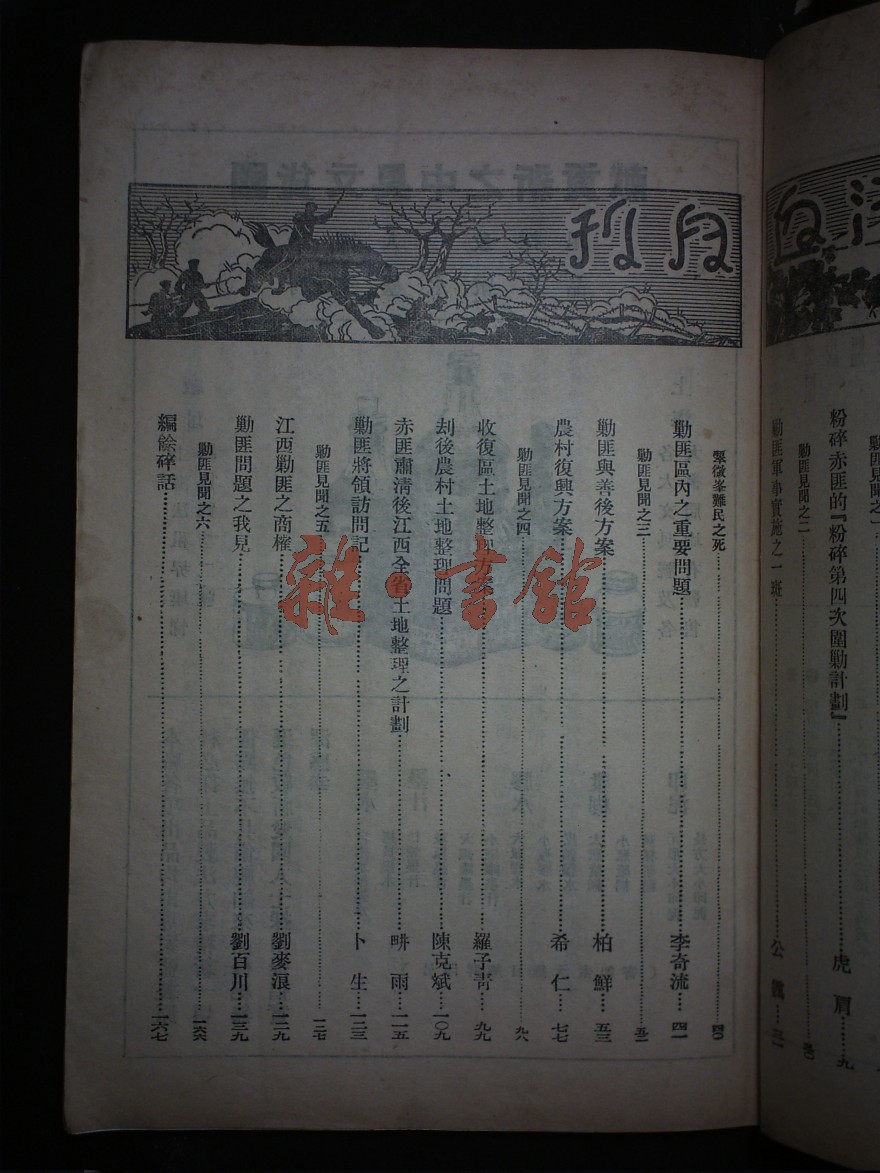 汗血月刊
粉碎赤匪的『粉碎第四次圍勦計劃』……虎眉……九
勦匪見聞之二
勦匪軍事實施之一班……公
翠微峯難民之死……四〇
勦匪區內之重要問題……李奇流……四一
勦匪見聞之三……五二
勦匪與善後方案……柏鮮……五三
農村復興方案……希仁……七七
勦匪見聞之四……九八
收復區土地整理方案……羅子青……九九
刦後農村土地整理問題……陳克斌……一〇九
赤匪肅清後江西全省土地整理之計劃……畊雨……一一五
勦匪將領訪問記……卜生……一二三
勦匪見聞之五……一二七
江西勦匪之商榷……劉麥浪……一二九
勦匪問題之我見……劉百川……一三九
勦匪見聞之六……一六六
編餘碎話……一六七
雜·書館